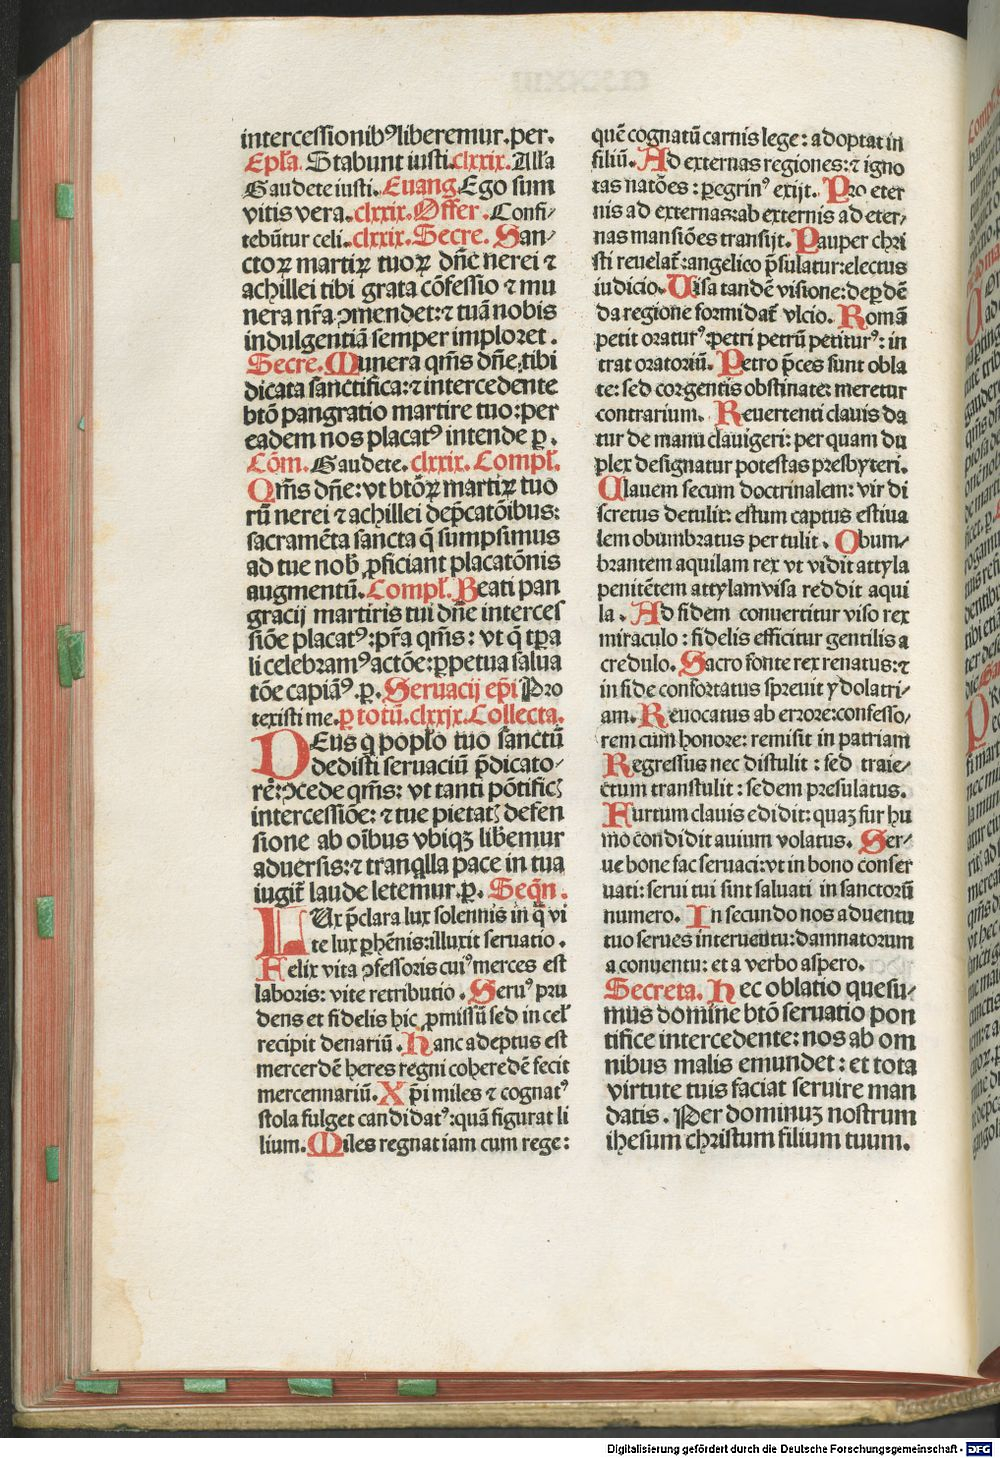 intercessionibꝰ liberemur. per.
Ep̄la. Stabunt iusti. clxxix. Alla
Gaudete iusti. Euang. Ego sum
vitis vera. clxxix. Offer. Confi-
tebūtur celi. clxxix. Secre. San-
ctoꝝ martiꝝ tuoꝝ dn̄e nerei ⁊
achillei tibi grata cōfessio ⁊ mu
nera nr̄a ꝯmendet: ⁊ tuā nobis
indulgentiā semper imploret.
Secre. Munera qm̄s dn̄e, tibi
dicata sanctifica: ⁊ intercedente
btō pangratio martire tuo: per
eadem nos placatꝰ intende ꝑ.
Cōm. Gaudete. clxxix. Compl̄.
Qm̄s dn̄e: vt btōꝝ martiꝝ tuo
rū nerei ⁊ achillei dep̄catōibus:
sacramēta sancta q̄ sumpsimus
ad tue nob̄ ꝓficiant placatōnis
augmentū. Compl̄. Beati pan
gracij martiris tui dn̄e interces
siōe placatꝰ: pr̄a qm̄s: vt q̄ tꝑa
li celebramꝰ actōe: ꝑpetua salua
tōe capiāꝰ. ꝑ. Seruacij ep̄i Pro
texisti me. ꝑ totū. clxxjx. Collecta.
DEus q poplo tuo sanctū
dedisti seruaciū p̄dicato-
rē: ꝯcede qm̄s: vt tanti pōtific̄
intercessiōe: ⁊ tue pietat̄ defen
sione ab oībus vbiqꝫ lib̄emur
aduersis: ⁊ tranqlla pace in tua
iugit̄ laude letemur. ꝑ. Seqn̄.
LUx p̄clara lux solennis in q̄ vi
te lux ꝑhēnis: illuxit seruatio.
Felix vita ꝯfessoris cuiꝰ merces est
laboris: vite retributio. Seruꝰ pru
dens et fidelis hic ꝓmissū sed in cel̄
recipit denariū. Hanc adeptus est
mercerdē heres regni coheredē fecit
mercennariū. Xp̄i miles ⁊ cognatꝰ
stola fulget candidatꝰ: quā figurat li
lium. Miles regnat iam cum rege:
quē cognatū carnis lege: adoptat in
filiū. Ad externas regiones: ⁊ igno
tas natōes: ꝑegrinꝰ exijt. Pro eter
nis ad externas: ab externis ad eter-
nas mansiōes transijt. Pauper chri
sti reuelat̄: angelico p̄sulatur: electus
iudicio. Uisa tandē visione: deꝑdē
da regione formidat̄ vlcio. Romā
petit oraturꝰ: petri petrū petiturꝰ: in
trat oratoriū. Petro p̄ces sunt obla
te: sed co:gentis obstinate: meretur
contrarium. Reuertenti clauis da
tur de manu clauigeri: per quam du
plex designatur potestas presbyteri.
Clauem secum doctrinalem: vir di
scretus detulit: estum captus estiua
lem obumbratus per tulit. Obum-
brantem aquilam rex vt vidit attyla
penitētem attylam visa reddit aqui
la. Ad fidem conuertitur viso rex
miraculo: fidelis efficitur gentilis a
credulo. Sacro fonte rex renatus: ⁊
in fide confortatus spreuit ydolatri-
am. Reuocatus ab errore: confesso-
rem cum honore: remisit in patriam
Regressus nec distulit: sed traie-
ctum transtulit: sedem presulatus.
Furtum clauis edidit: quaꝫ fur hu
mo condidit auium volatus. Ser-
ue bone fac seruaci: vt in bono conser
uati: serui tui sint saluati in sanctorū
numero. In secundo nos aduentu
tuo serues interuentu: damnatorum
a conuentu: et a verbo aspero.
Secreta. Hec oblatio quesu-
mus domine btō seruatio pon
tifice intercedente: nos ab om
nibus malis emundet: et tota
virtute tuis faciat seruire man
datis. Per dominuꝫ nostrum
ihesum christum filium tuum.
Digitalisierung gefördert durch die Deutsche Forschungsgemeinschaft - DFG